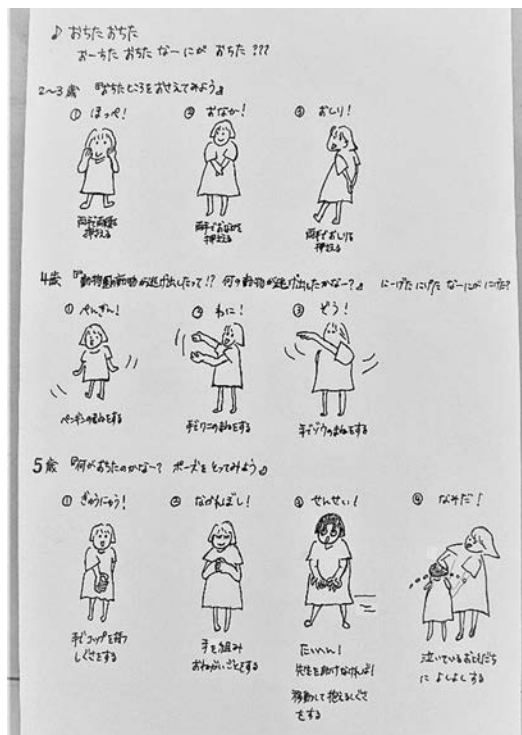 ♪ おちた おちた
おーちた おちた なーにが おちた ???
2〜3歳 『おちたところをおさえてみよう』
① ほっぺ! ② おなか! ③ おしり!
両手で両頬を押さえる 両手でおなかを押さえる 両手でおしりを押さえる
4歳 『動物園の動物が逃げ出したって!? 何の動物が逃げ出したかなー?』 にーげた にげた なーにが にげた?
① ぺんぎん! ② わに! ③ ぞう!
ペンギンのまねをする 手でワニのまねをする 手でゾウのまねをする
5歳 『何がおちたのかなー? ポーズをとってみよう』
① ぎゅうにゅう! ② ながれぼし! ③ せんせい! ④ なみだ!
手でコップを持つしぐさをする 手を組みおねがいごとをする たいへん!先生を助けなければ!移動して抱えるしぐさをする 泣いているおともだちに よしよしする